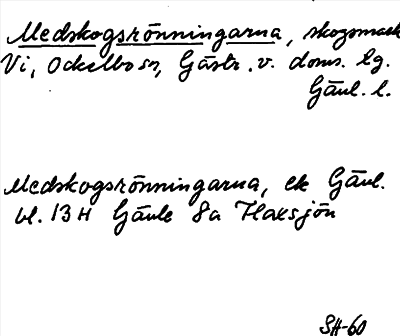 Medskogsrönningarna, skogsmark
Vi, Ockelbo sn, Gästr. v. doms. lg.
Gävl. l.
Medskogsrönningarna, ek Gävl.
bl. 13 H Gävle 8a Flaxsjön
SH-60